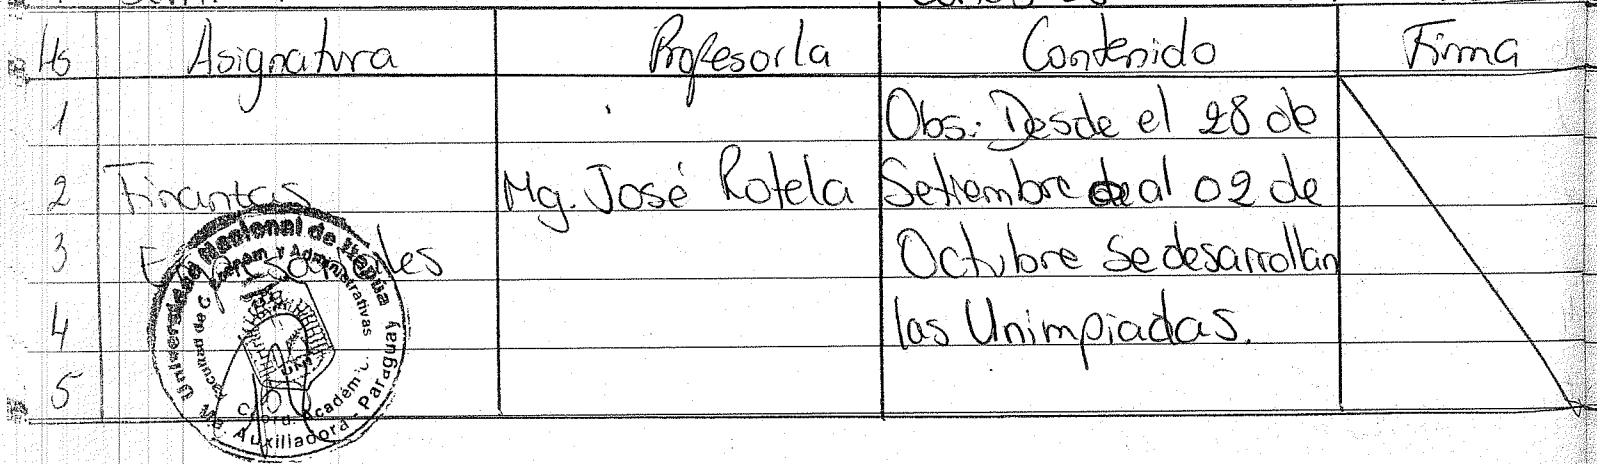 Hs Asignatura Profesor/a Contenido Firma
1 Obs: Desde el 28 de
2 Finanzas Mg. José Rotela Setiembre de al 02 de
3 Octubre se desarrollan
4 las Unimpiadas.
5
Universidad Nacional de Itapúa
Paraguay
y Administrativas
Coord. Académic
Ma. Auxiliadora - Paraguay